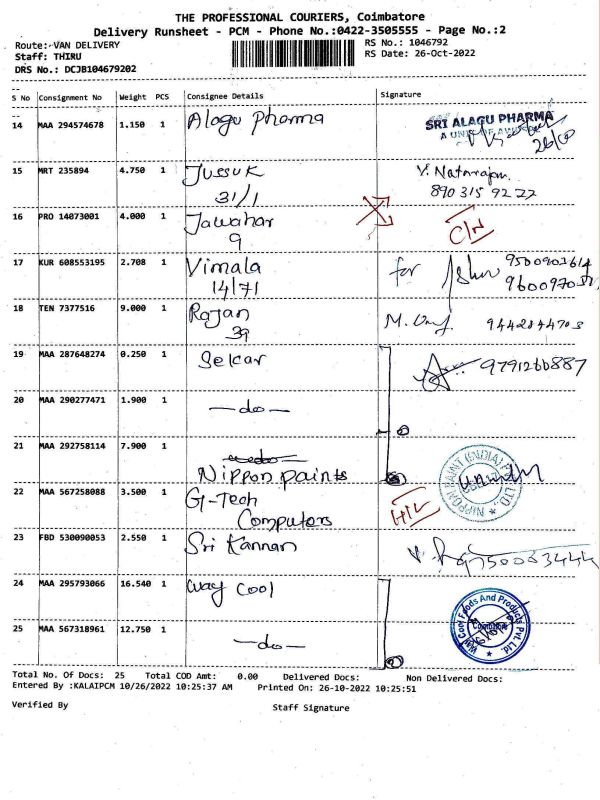 THE PROFESSIONAL COURIERS, Coimbatore
Delivery Runsheet - PCM - Phone No.:0422-3505555 - Page No.:2
Route:-VAN DELIVERY RS No.: 1046792
Staff: THIRU RS Date: 26-Oct-2022
DRS No.: DCJB104679202
S No Consignment No Weight PCS Consignee Details Signature
14 MAA 294574678 1.150 1 Alagu Pharma SRI ALAGU PHARMA
26/10
15 MRT 235894 4.750 1 Jussuk V. Natarajan
31/1 890 315 9277
16 PRO 14073001 4.000 1 Jawahar C/N
9
17 KUR 608553195 2.708 1 Vimala for 9500903614
14/71
18 TEN 7377516 9.000 1 Rajan M.
39
19 MAA 287648274 0.250 1 Selcar 9791260887
20 MAA 290277471 1.900 1 —do—
21 MAA 292758114 7.900 1
Nippon paints NIPPON PAINT (INDIA) P. LTD.
22 MAA 567258088 3.500 1 G-Tech
Computors
23 FBD 530090053 2.550 1 Sri Kannan
24 MAA 295793066 16.540 1 Way Cool Way Cool Foods And Products Pvt. Ltd.
Coimbatore
25 MAA 567318961 12.750 1 —do—
Total No. Of Docs: 25 Total COD Amt: 0.00 Delivered Docs: Non Delivered Docs:
Entered By :KALAIPCM 10/26/2022 10:25:37 AM Printed On: 26-10-2022 10:25:51
Verified By Staff Signature